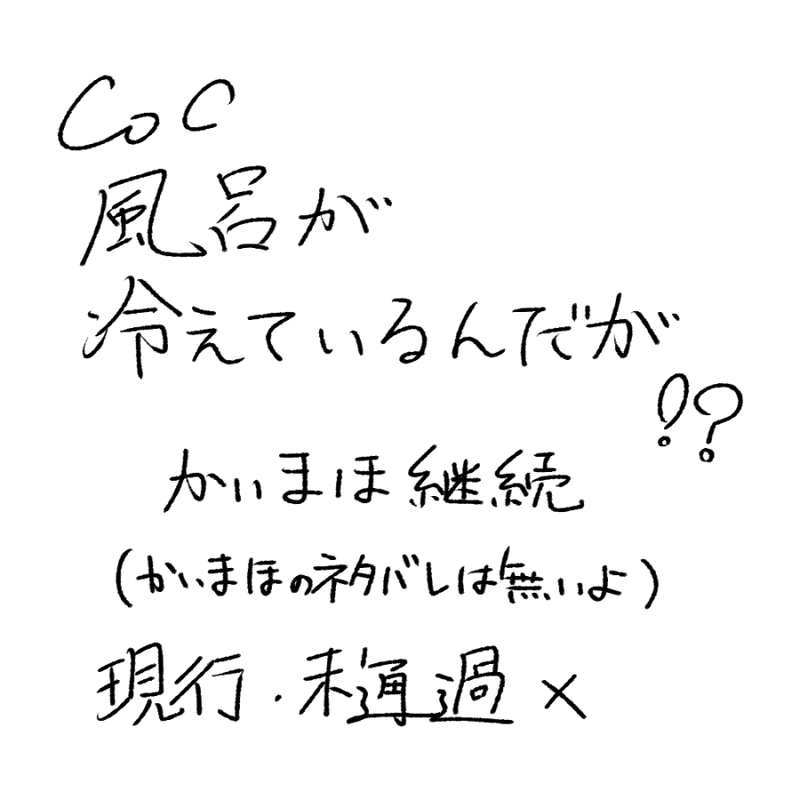 CoC
風呂が
冷えているんだが
!?
かいまほ継続
(かいまほのネタバレは無いよ)
現行・未通過×